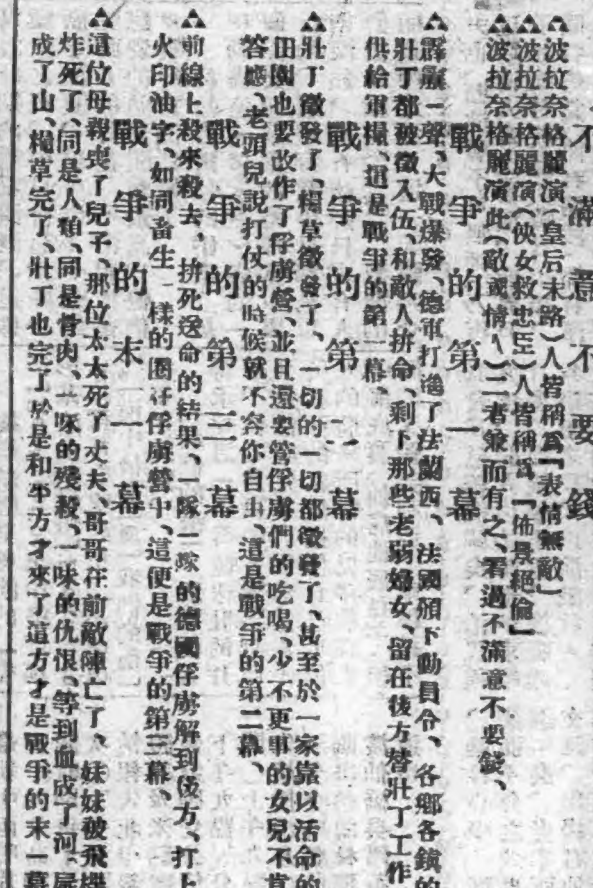 不滿意不要錢
波拉奈格麗演(皇后末路)人皆稱爲「表情無敵」
波拉奈格麗演(俠女救忠臣)人皆稱爲「佈景絕倫」
波拉奈格麗演此(敵國情人)二者兼而有之、看過不滿意不要錢、
戰爭的第一幕
霹靂一聲、大戰爆發、德軍打進了法蘭西、法國頒下動員令、各鄉各鎮的
壯丁都被徵入伍、和敵人拚命、剩下那些老弱婦女、留在後方替壯丁工作
供給軍糧、這是戰爭的第一幕、
戰爭的第二幕
壯丁徵發了、糧草徵發了、一切的一切都徵發了、甚至於一家靠以活命的
田園也要改作了俘虜營、並且還要管俘虜們的吃喝、少不更事的女兒不肯
答應、老頭兒說打仗的時候就不容你自由、這是戰爭的第二幕、
戰爭的第三幕
前線上殺來殺去、拚死送命的結果、一隊一隊的德國俘虜解到後方、打上
火印油字、如同畜生一樣的圈在俘虜營中、這便是戰爭的第三幕、
戰爭的末一幕
這位母親喪了兒子、那位太太死了丈夫、哥哥在前敵陣亡了、妹妹被飛機
炸死了、同是人類、同是骨肉、一味的殘殺、一味的仇恨、等到血成了河、屍
成了山、糧草完了、壯丁也完了於是和平方才來了這方才是戰爭的末一幕